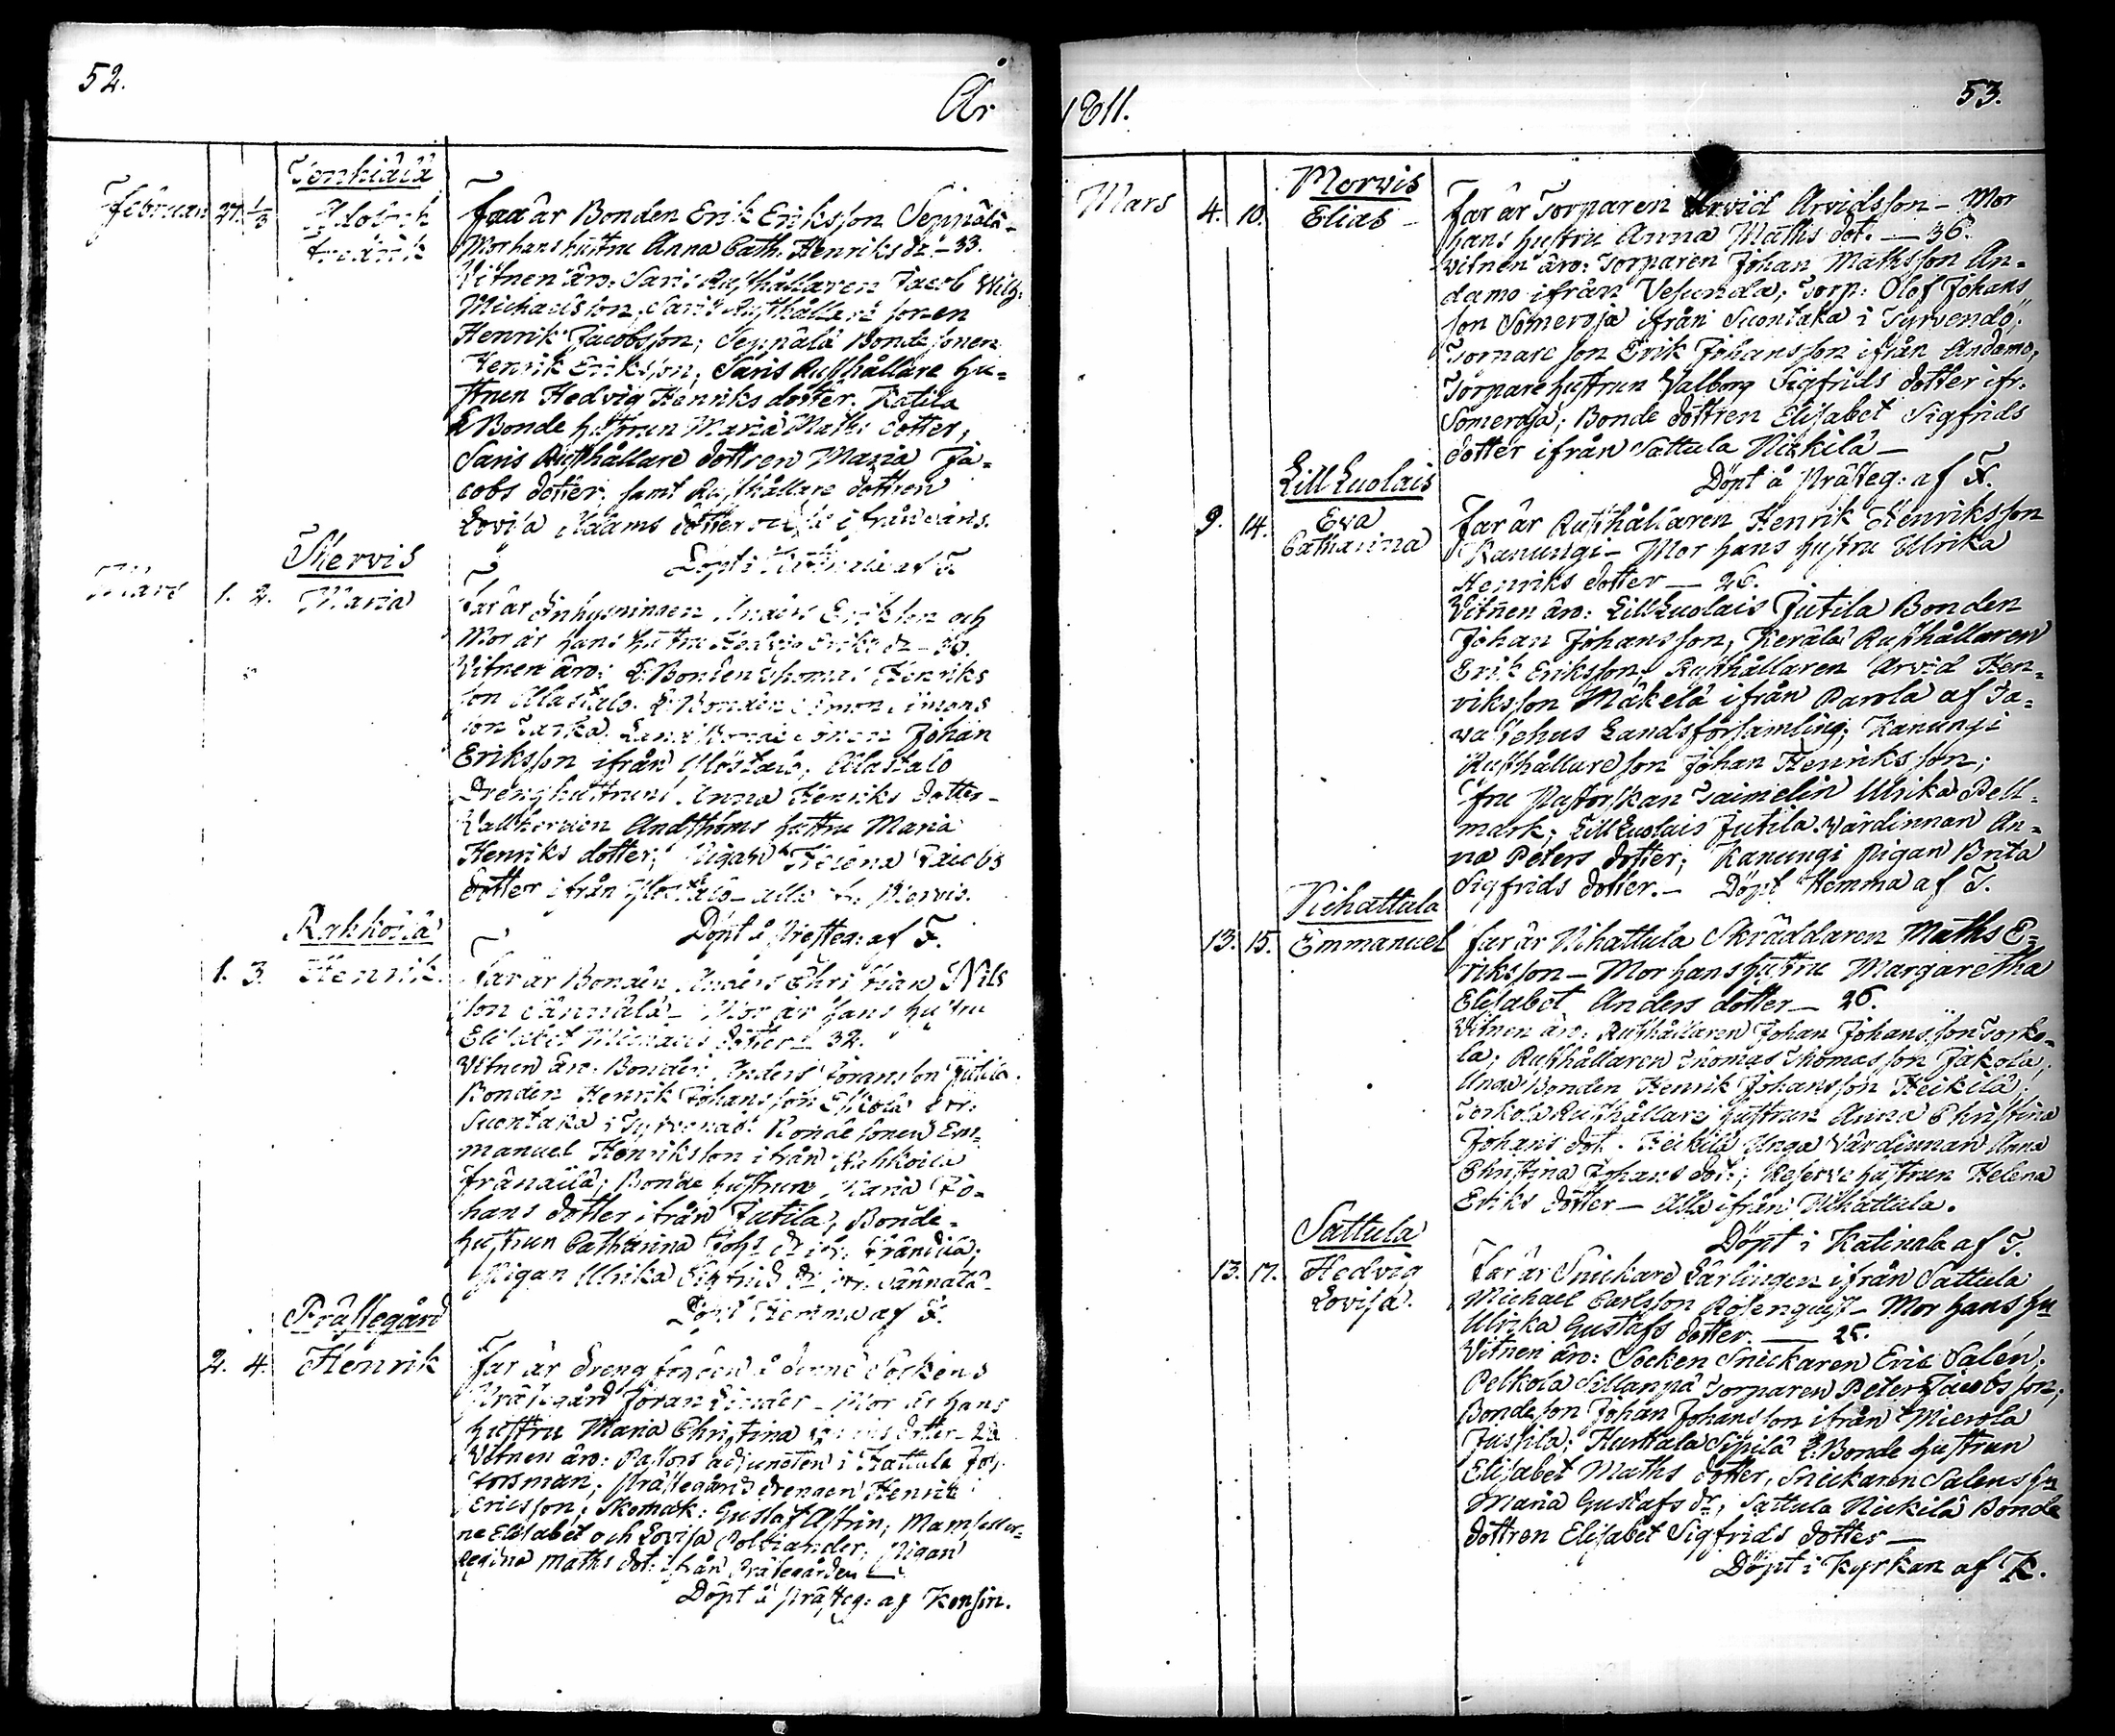 52.
År
Februari 27. 1/3
Adolph
Fredrik
Far är Bonden Erik Eriksson Seppälä
Mor hans hustru Anna Cath. Henriks dr – 33.
Vitnen äro: Saris Rusthållaren Jacob
Michaelsson, Saris Rusthållare sonen
Henrik Jacobsson; Seppälä Bonde sonen
Henrik Eriksson, Saris Rusthållare hu-
strun Hedvig Henriks dotter. Katila
Bonde hustrun Maria Maths dotter;
Saris Rusthållare dottren Maria Ja-
cobs dotter. samt Rusthållare dottren
Lovisa Adams dotter ifrån
Döpt i af F.
Mervis
Mars 1. 2. Maria
Far är Inhysningen Anders Eriksson och
Mor är hans hustru Hedvig Eriks dr –
Vitnen äro: Bonden Thomas Henriks
son Alastalo. Bonden Simon Simons
son Johan
Eriksson ifrån Ylöstalo; Alastalo
Drenghustrun Anna Henriks dotter –
Vallherden Andsthöms hustru Maria
Henriks dotter; Pigan Helena Jacobs
dotter ifrån Ylöstalo – alla ifr. Mervis.
Döpt å Presteg: af F.
Rahkoila
1. 3. Henrik.
Far är Bonden Anders Christian Nils
son Männälä – Mor är hans hustru
Elisabet Michaels dotter – 32.
Vitnen äro: Bonden Anders Göransson Jutila.
Bonden Henrik Johansson ifr.
Suontaka i Tyrvendö. Bonde sonen Em-
manuel Henriksson ifrån Rahkoila
Fränäilä; Bonde hustrun Maria Jo-
hans dotter ifrån Jutila; Bonde-
hustrun Catharina Johs dr ifr. Fränäilä;
Pigan Ulrika Sigfrids dr ifr. Männälä.
Döpt Hemma af F.
Prästegård
2. 4. Henrik
Far är Dreng fogden å denne Sockens
Prästegård Jöran Linder – Mor är hans
hustru Maria Christina dotter –
Vitnen äro: Pastors adjuncten i Hattula Joh.
Forsman; Prästegårds drengen Henrik
Ericsson; Skomak: Gustaf Astrin; Mamseller-
ne Elisabet och Lovisa Polviander; Pigan
Regina Maths dot: ifrån Prästegården –
Döpt å Prästeg: af Konsin.
1811.
53.
Mervis
Mars 4. 10. Elias –
Far är Torparen Arvid Arvidsson – Mor
hans hustru Anna Maths dot. – 36.
Vitnen äro: Torparen Johan Mathsson An-
damo ifrån Vesunda; Torp: Olof Johans
son Someroja ifrån Suontaka i Tyrvendö;
Torpare son Erik Johansson ifrån Andamo;
Torpare hustrun Valborg Sigfrids dotter ifr.
Someroja; Bonde dottren Elisabet Sigfrids
dotter ifrån Sattula Nickilä –
Döpt å Prästeg: af F.
Lill Luolais
9. 14. Eva
Catharina
Far är Rusthållaren Henrik Henriksson
Kanungi – Mor hans hustru Ulrika
Henriks dotter – 26.
Vitnen äro: Lill Luolais Jutila Bonden
Johan Johansson; Kerälä Rusthållaren
Erik Eriksson. Rusthållaren Arvid Hen-
riksson Mäkelä ifrån Parola af Ta-
vastehus Landsförsamling; Kanungi
Rusthållare son Johan Henriksson;
Fru Pastorskan Taimelin Ulrika Bell-
mark; Lill Luolais Jutila Värdinnan An-
na Peters dotter; Kanungi Pigan Brita
Sigfrids dotter. – Döpt Hemma af F.
Vihattula
13. 15. Emmanuel
Far är Vihattula Skräddaren Maths E-
riksson – Mor hans hustru Margaretha
Elisabet Anders dotter – 26.
Vitnen äro: Rusthållaren Johan Johansson Torko-
la; Rusthållaren Thomas Thomasson Jakola;
Unga Bonden Henrik Johansson Heikilä;
Torkola Rusthållare hustrun Anna Christina
Johans dot. Heikilä Unga Värdinnan Anna
Christina Johans dot.; Reserve hustrun Helena
Eriks dotter – Alla ifrån Vihattula.
Döpt i Katinala af F.
Sattula
13. 17. Hedvig
Lovisa.
Far är Snickare Lärlingen ifrån Sattula
Michael Carlsson Rosenquist – Mor hans hu
Ulrika Gustafs dotter. – 25.
Vitnen äro: Socken Snickaren Eric Salén;
Pelkola Sillanpä Torparen Peter Jacobsson;
Bonde son Johan Johansson ifrån Mierola
Jussila; Hurttala Sipilä Bonde hustrun
Elisabet Maths dotter, Snickaren Salens hu
Maria Gustafs dr; Sattula Nickilä Bonde
dottren Elisabet Sigfrids dotter –
Döpt i Kyrkan af K.